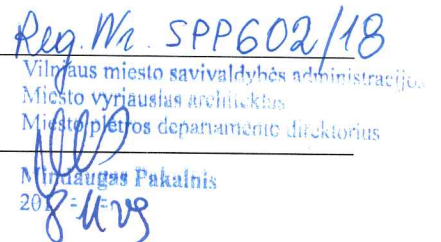 Reg. Nr. SPP602/18
Vilniaus miesto savivaldybės administracijos
Miesto vyriausias architektas
Miesto plėtros departamento direktorius
Mindaugas Pakalnis
201